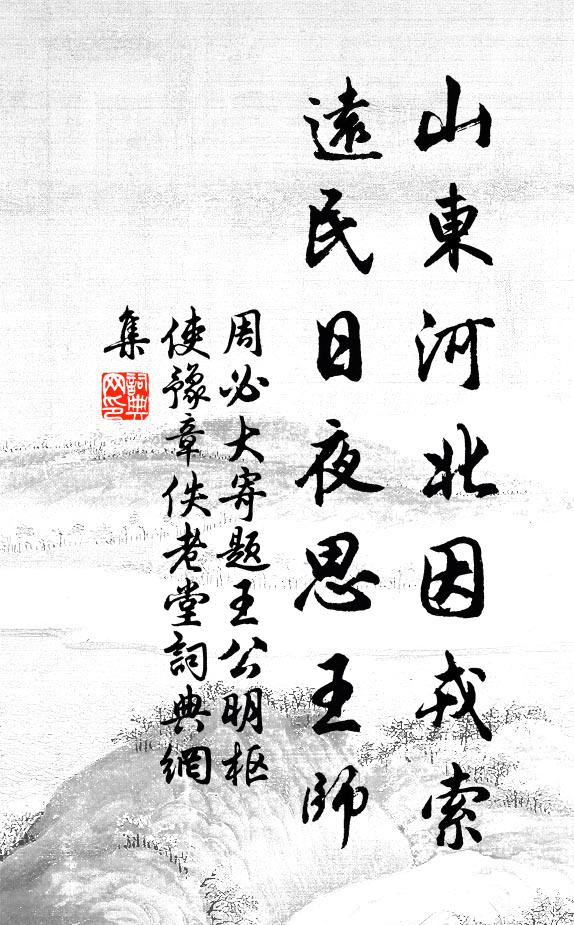 山東河北因戎索
遠民日夜思王師
周必大寄題王公明樞
使豫章佚老堂詞典網
集
詞典
网印